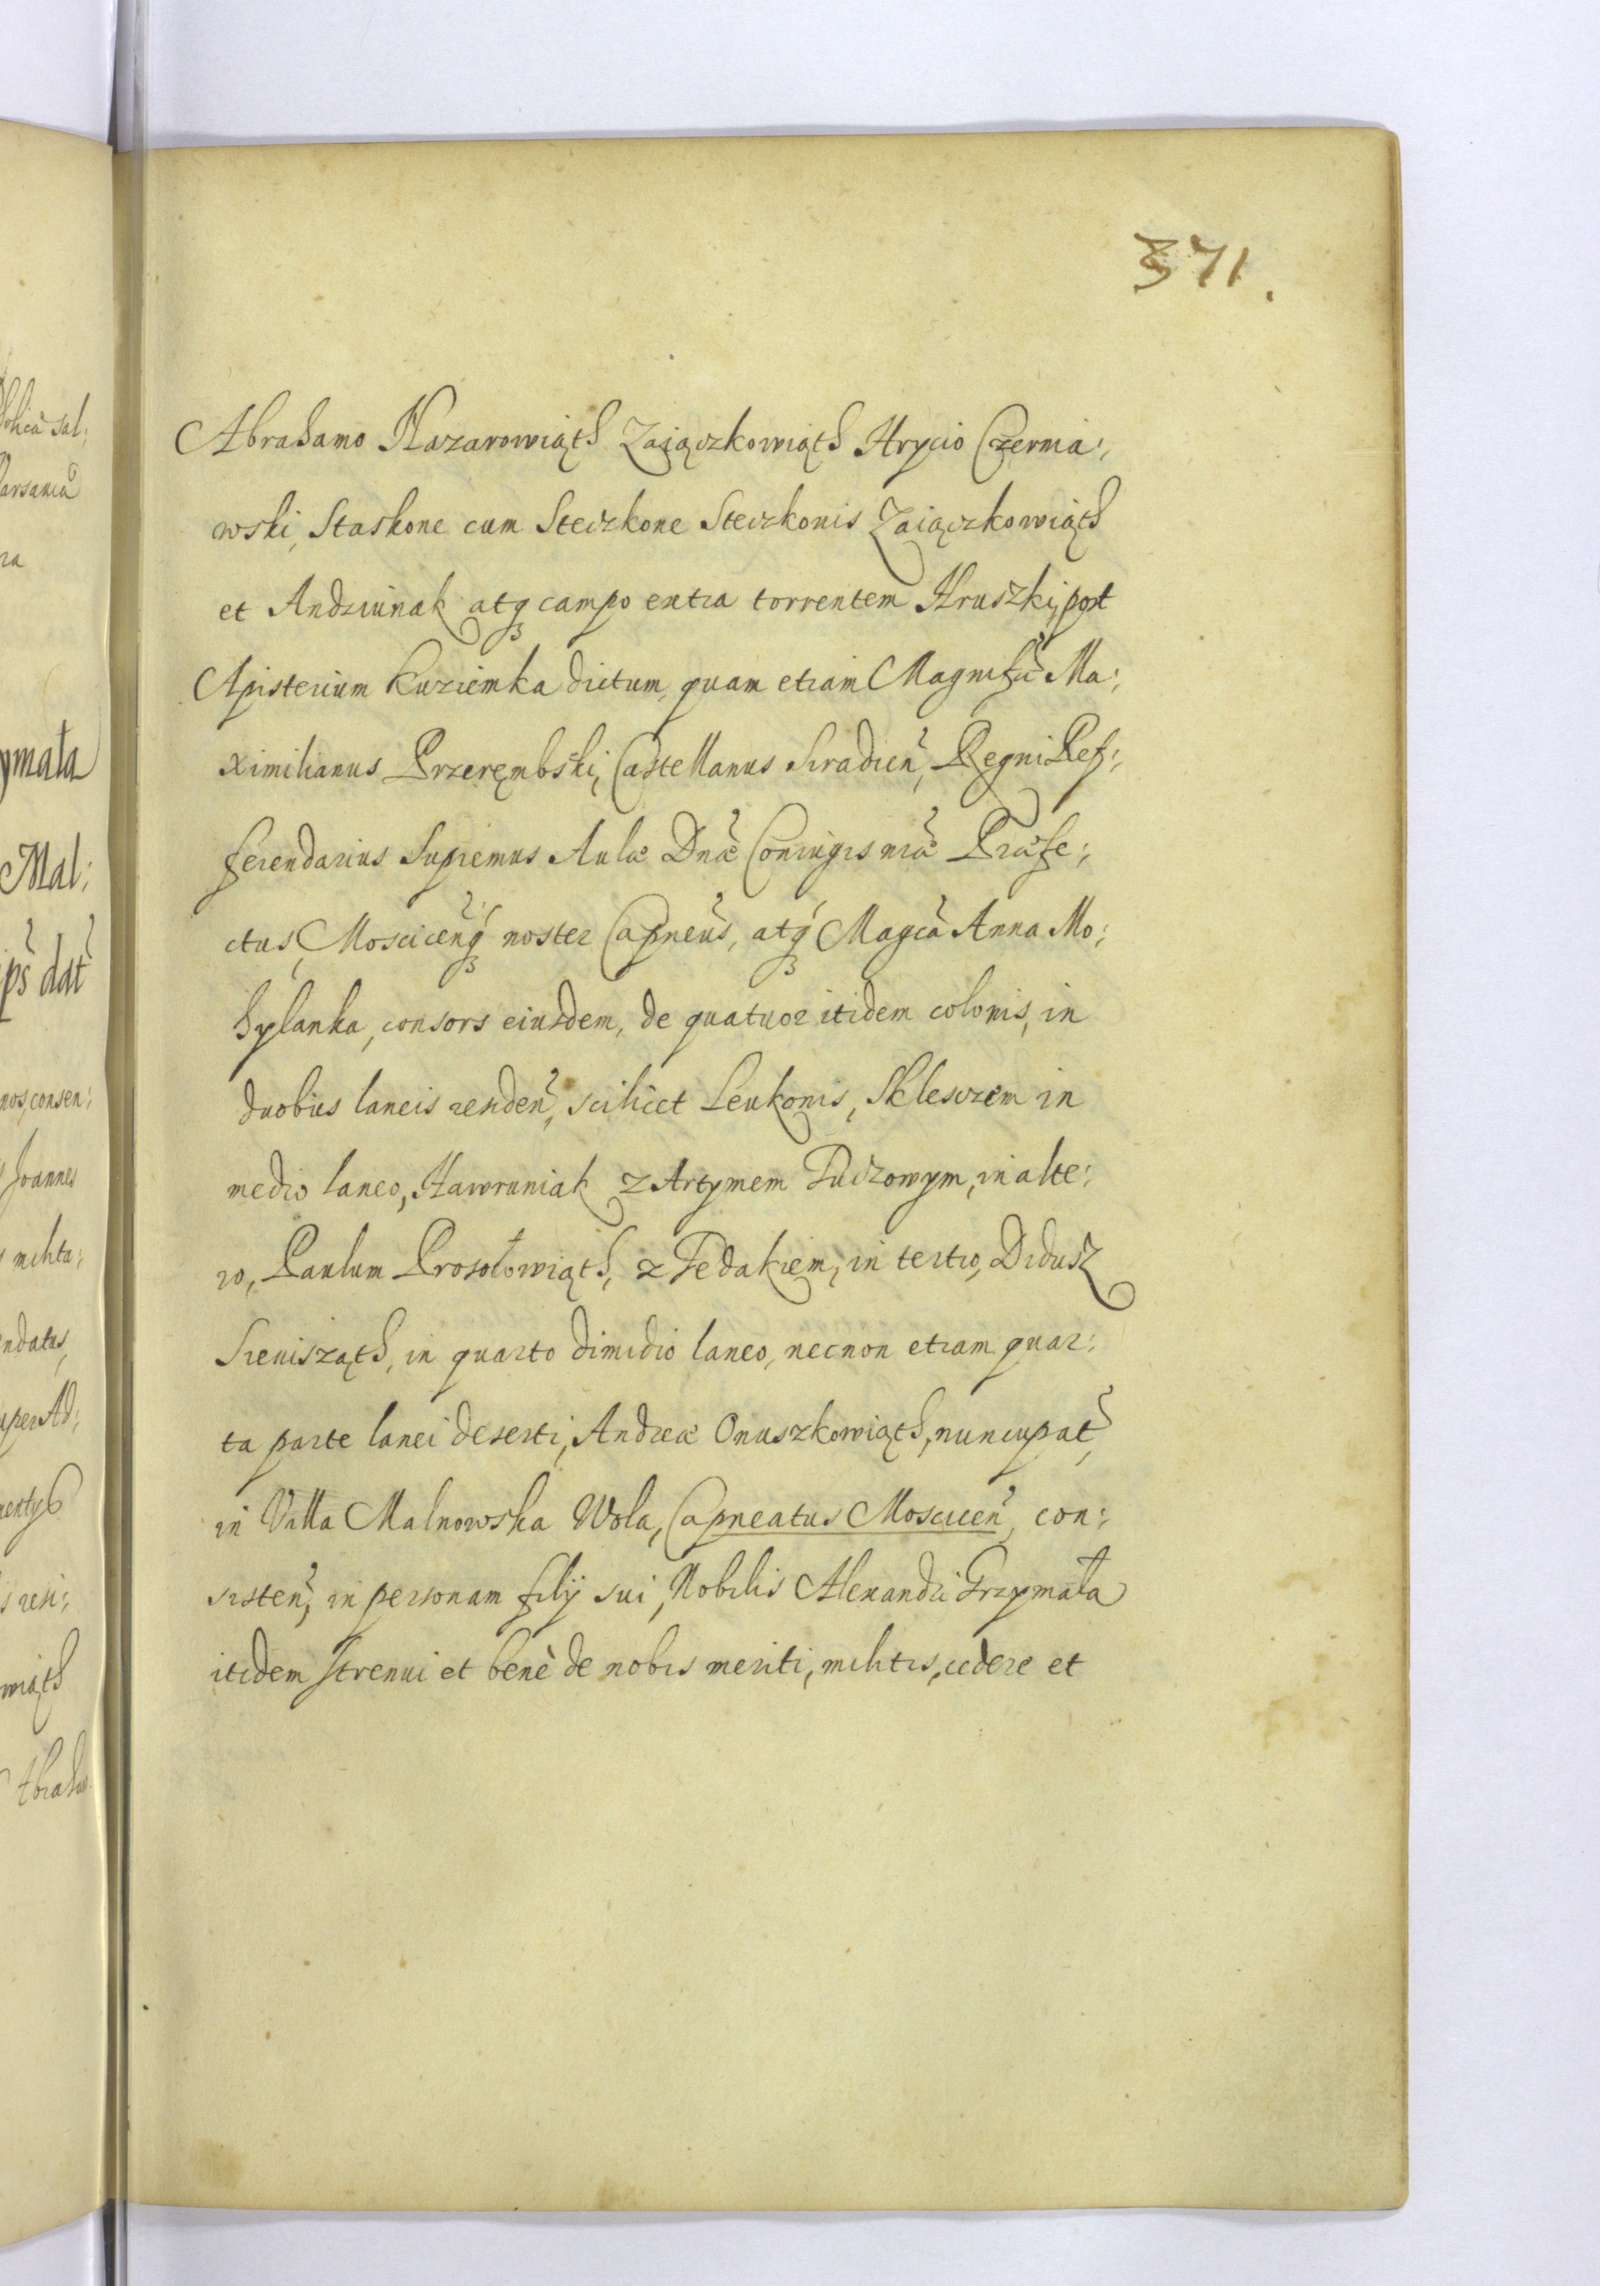 371.
Abrahamo Nazarowiąth Zaiączkowiąth Hrycio Czernia:,
wski, Staskone cum Steczkone Steczkonis Zaiączkowiąth
et Andziunak atq3 campo extra torrentem Hruszki, post
Apisterium Kuziemka dictum, quam etiam Magnifcu Ma:,
ximilianus Przerembski, Castellanus Siradien, Regni Ref:,
ferendarius Supremus Aulæ Dnæ Coniugis nræ Præfe:,
ctus, Moscicenq3 noster Capneus, atq3 Magca Anna Mo:,
hylanka, consors eiusdem, de quatuor itidem colonis, in
duobus laneis residen, scilicet Leukonis, Skleszem in
medio laneo, Hawruniak z Artymem Puczowym, in alte:
ro, Paulum Prosołowiąth, z Fedakiem, in tertio, Didusz
Sienisząth, in quarto dimidio laneo, necnon etiam quar:
ta parte lanei deserti, Andreæ Onuszkowiąth, nuncupat,
in Villa Malnowska Wola, Capneatus Moscicen, con:,
sisten, in personam filij sui, Nobilis Alexandri Grzymała
itidem strenui et benè de nobis meriti, militis, cedere et
ymała
Mal:
ps dat
nos, consen:,
Joannes
s milita:,
ndatus,
uper Ad:,
wiąth